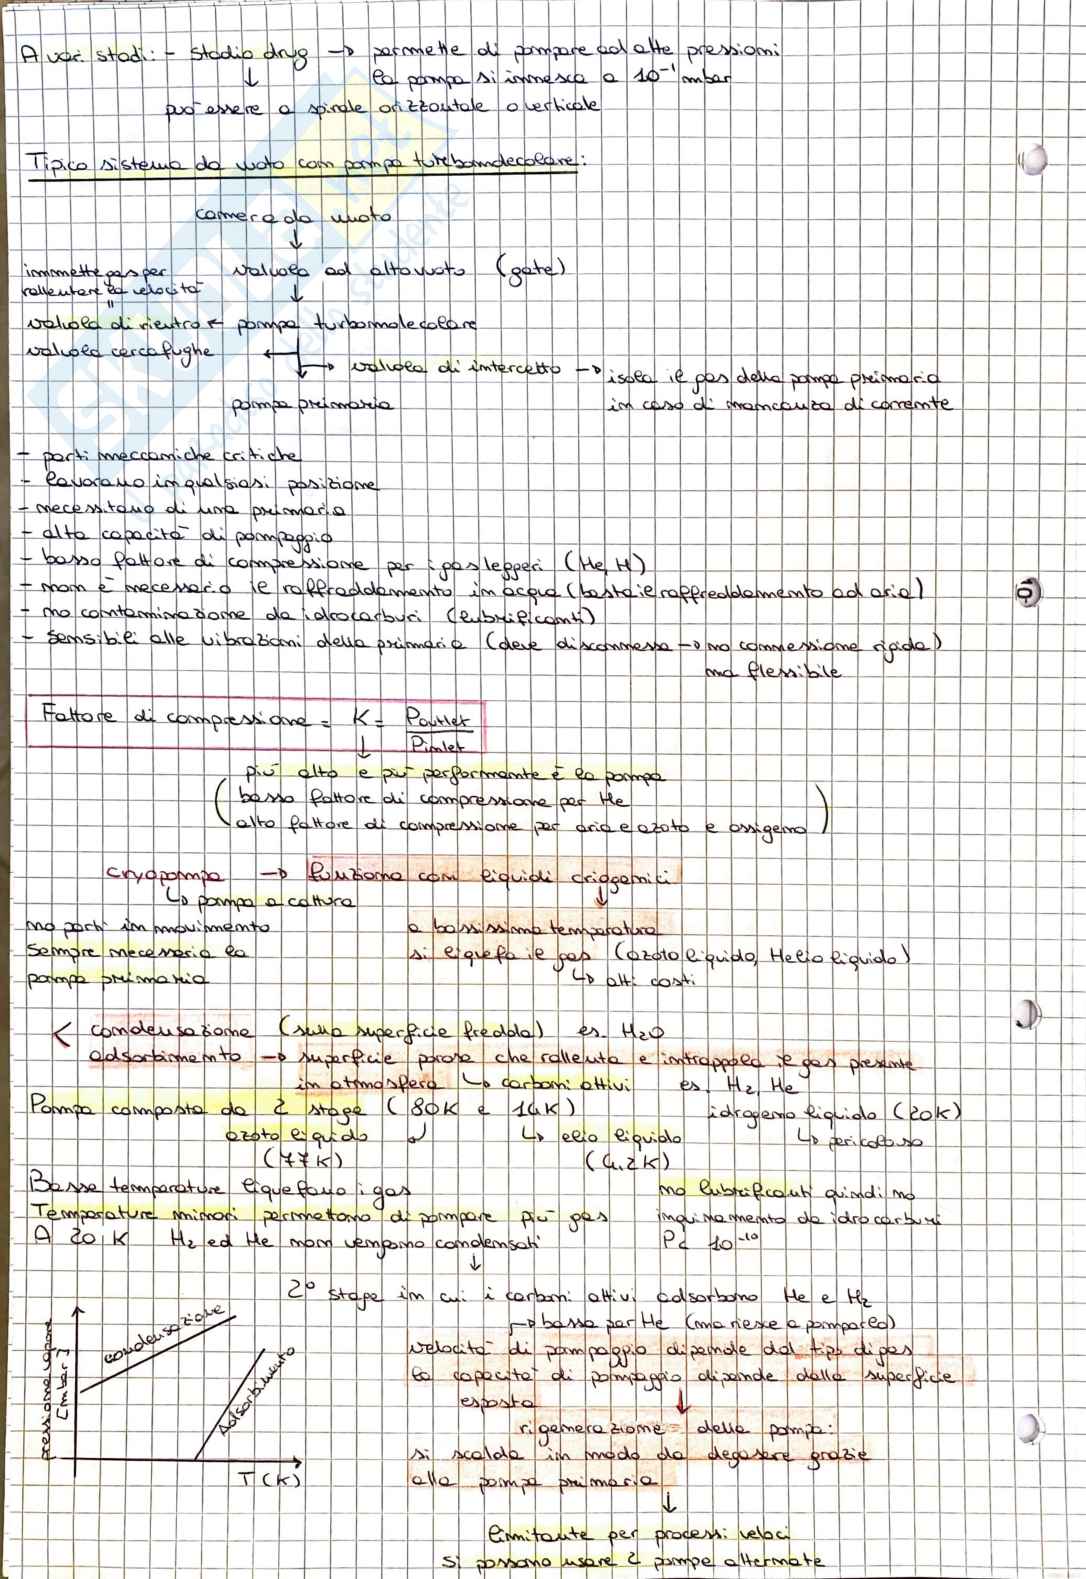 A vari stadi: - Stadio drag → permette di pompare ad alte pressioni
↓ la pompa si innesca a 10⁻¹ mbar
può essere a spirale orizzontale o verticale
Tipico sistema da vuoto con pompa turbomolecolare:
camera da vuoto
↓
immette gas per valvola ad alto vuoto (gate)
rallentare la velocità ↓
"
valvola di rientro ← pompa turbomolecolare
valvola cercafughe ←
→ valvola di intercetto → isola il gas della pompa primaria
pompa primaria in caso di mancanza di corrente
- parti meccaniche critiche
- lavorano in qualsiasi posizione
- necessitano di una primaria
- alta capacità di pompaggio
- basso fattore di compressione per i gas leggeri (He, H)
- non è necessario il raffreddamento in acqua (basta il raffreddamento ad aria)
- no contaminazione da idrocarburi (lubrificanti)
- sensibili alle vibrazioni della primaria (deve disconnessa → no connessione rigida)
ma flessibile
Fattore di compressione = K = Poutlet
Pinlet
↓
più alto e più performante è la pompa
(basso fattore di compressione per He
alto fattore di compressione per aria e azoto e ossigeno)
cryopompa → funziona con liquidi criogenici
↳ pompa a cattura ↓
no parti in movimento a bassissima temperatura
sempre necessaria la si liquefa il gas (azoto liquido, Helio liquido)
pompa primaria ↳ alti costi
< condensazione (sulla superficie fredda) es. H₂O
adsorbimento → superficie porosa che rallenta e intrappola il gas presente
in atmosfera ↳ carboni attivi es. H₂, He
Pompa composta da 2 stage (80K e 14K) idrogeno liquido (20K)
azoto liquido ↲ ↳ elio liquido ↳ pericoloso
(77K) (4.2K)
Basse temperature liquefano i gas no lubrificanti quindi no
Temperature minori permettono di pompare più gas inquinamento da idrocarburi
A 20 K H₂ ed He non vengono condensati P< 10⁻¹⁰
↓
2° stage in cui i carboni attivi adsorbono He e H₂
↱ bassa per He (ma riesce a pomparlo)
velocità di pompaggio dipende dal tipo di gas
la capacità di pompaggio dipende dalla superficie
esposta ↓
rigenerazione della pompa:
si scalda in modo da degasare grazie
alla pompa primaria
↓
limitante per processi veloci
si possono usare 2 pompe alternate
pressione vapore
[mbar]
condensazione
adsorbimento
T (K)